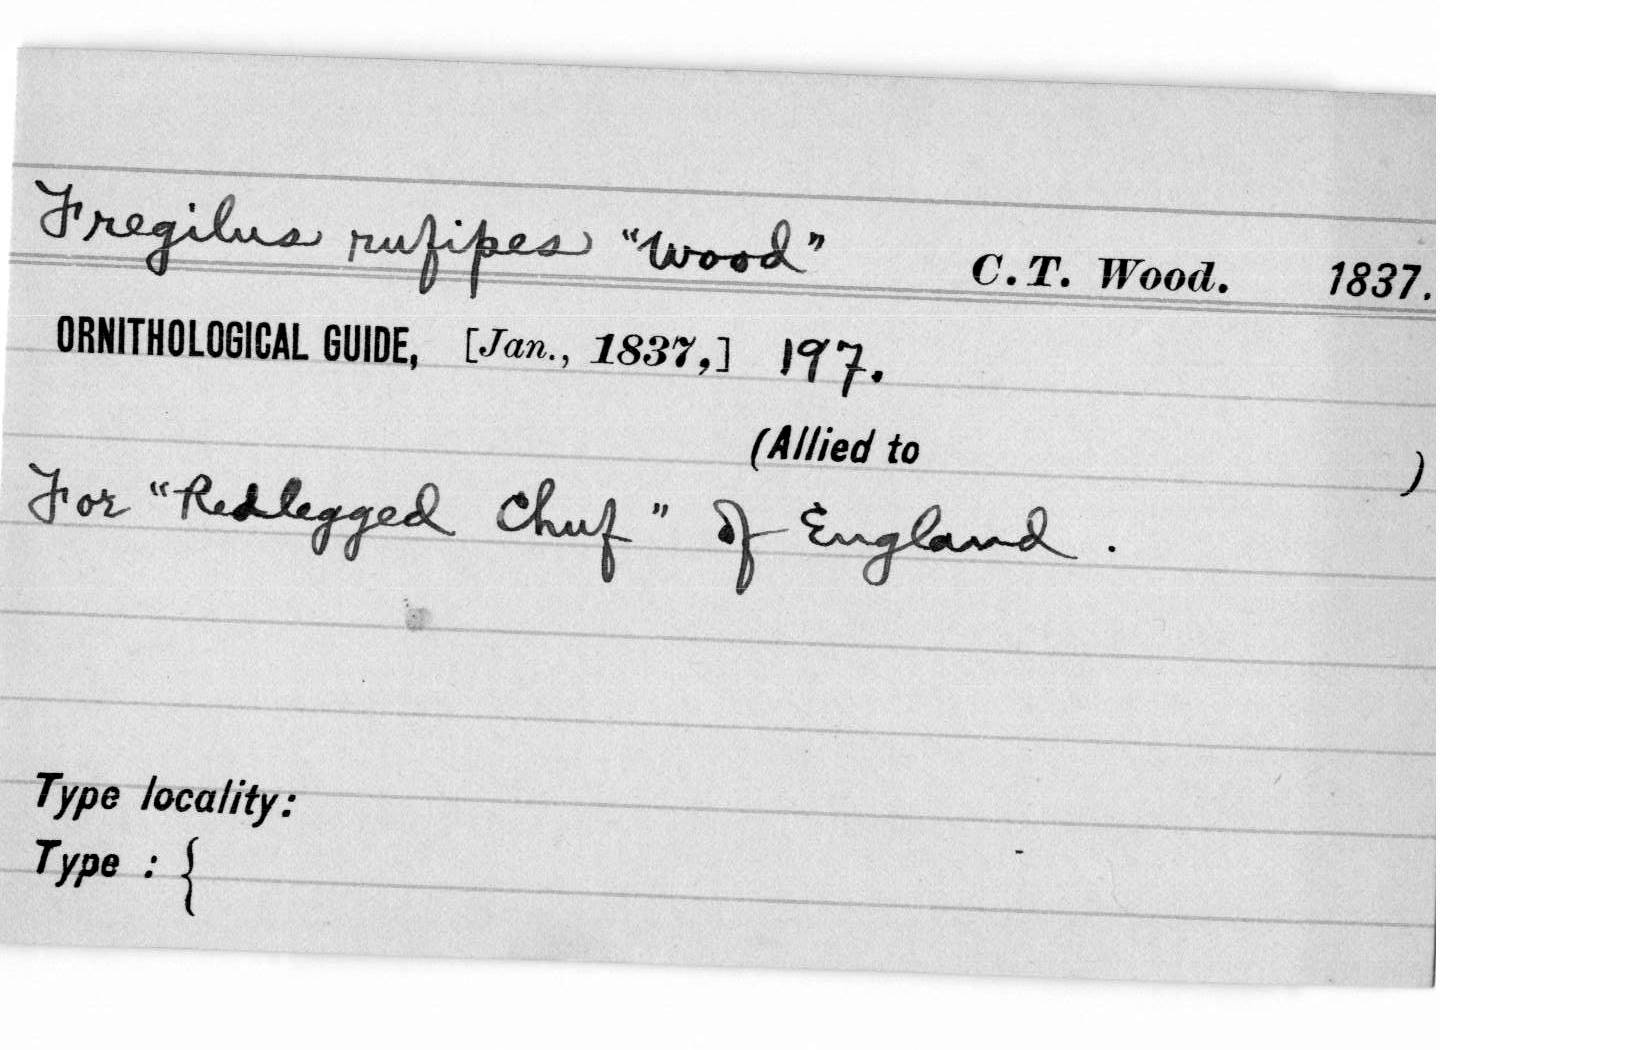 Fregilus rufipes "Wood" C.T. Wood. 1837.
ORNITHOLOGICAL GUIDE, [Jan., 1837,] 197.
(Allied to )
For "Redlegged Chuf" of England.
Type locality:
Type : {